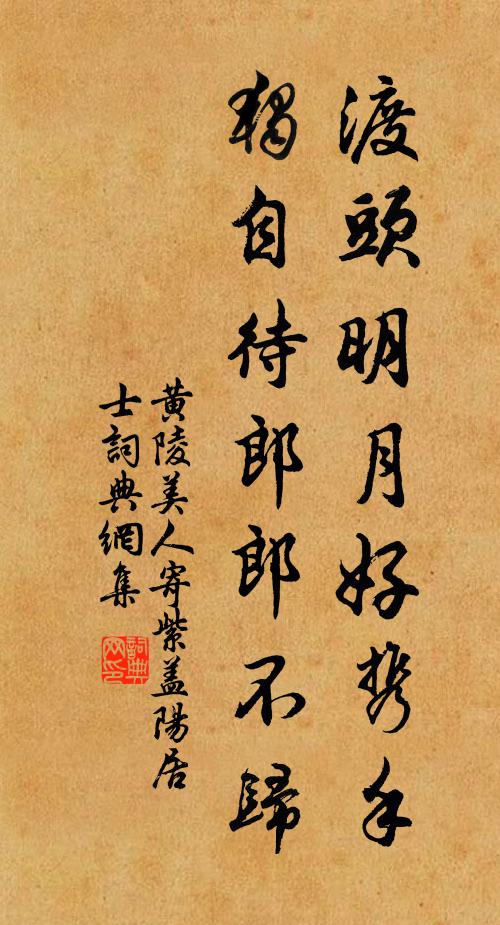 渡頭明月好攜手
獨自待郎郎不歸
黄陵美人寄紫蓋陽居
士詞典網集
詞典網印